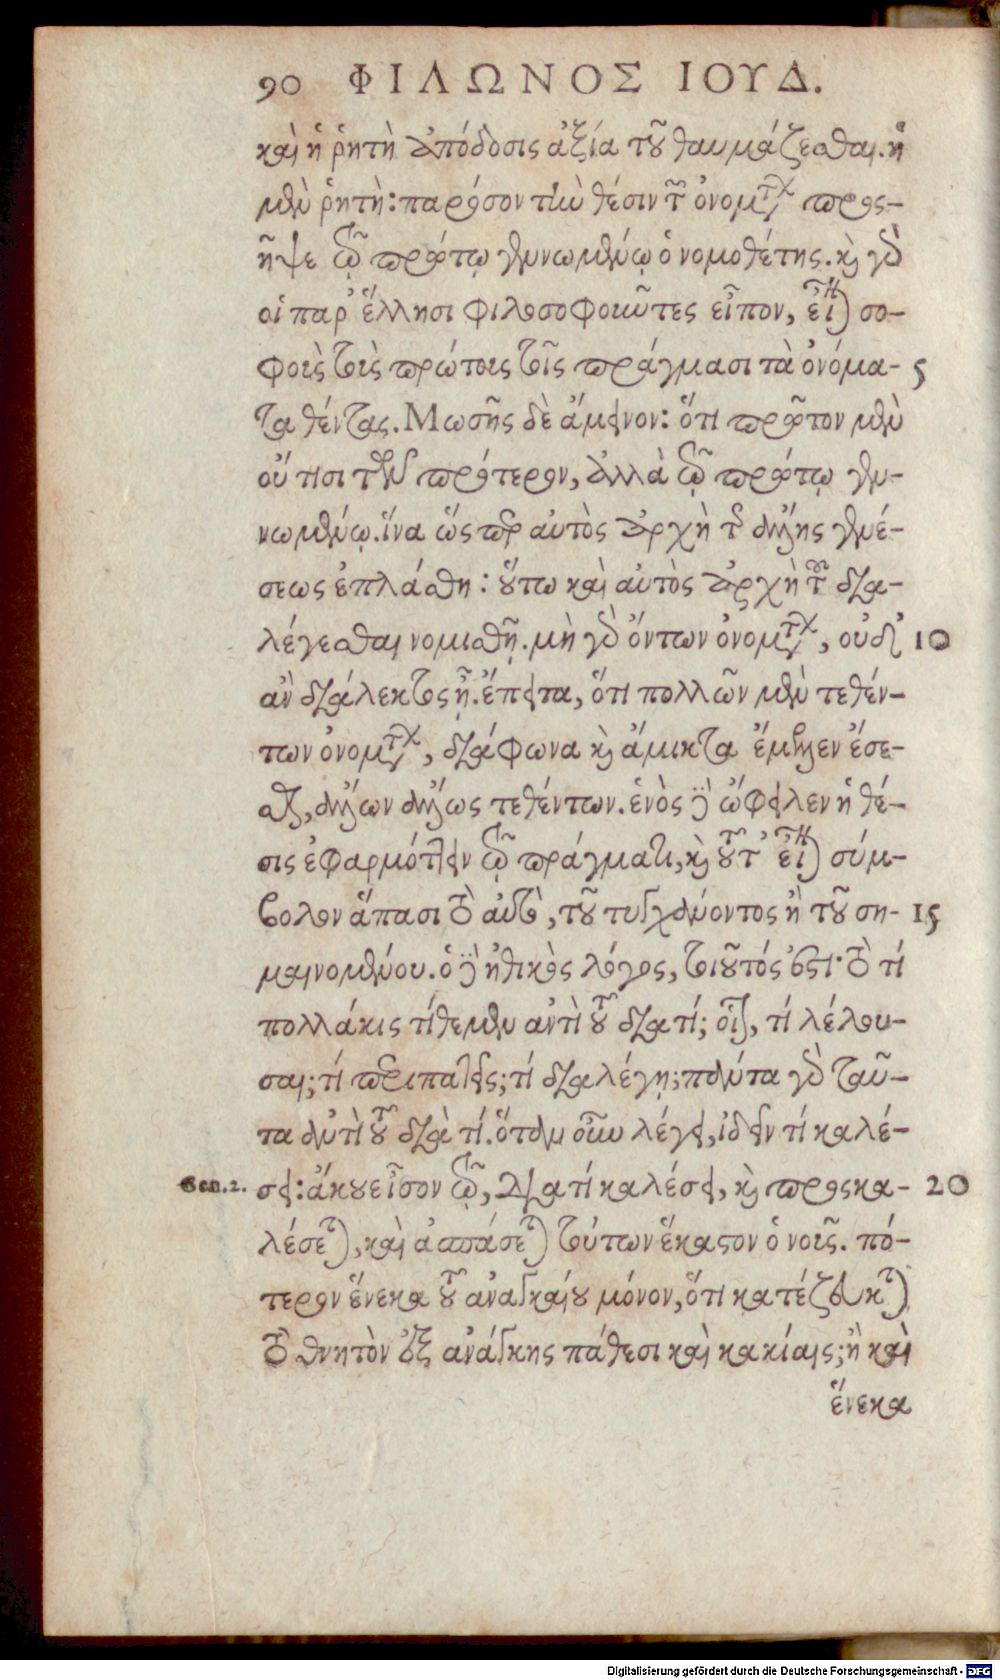 90 ΦΙΛΩΝΟΣ ΙΟΥΔ.
καὶ ἡ ῥητὴ ἀπόδοσις ἀξία τοῦ θαυμάζεσθαι. ἡ
μὲν ῥητὴ: παρόσον τὴν θέσιν τῶν ὀνομάτων προς-
ῆψε τῷ πρώτῳ γενομένῳ ὁ νομοθέτης. καὶ γὰρ
οἱ παρ' ἕλλησι φιλοσοφοῦντες εἶπον, εἶναι σο-
φοὺς τοὺς πρώτους τοῖς πράγμασι τὰ ὀνόμα- 5
τα θέντας. Μωσῆς δὲ ἄμεινον: ὅτι πρῶτον μὲν
οὔ τισι τῶν πρότερον, ἀλλὰ τῷ πρώτῳ γε-
νωμένῳ. ἵνα ὥσπερ αὐτὸς ἀρχὴ τῆς ἄλλης γενέ-
σεως ἐπλάσθη: οὕτω καὶ αὐτὸς ἀρχὴ τοῦ δια-
λέγεσθαι νομισθῇ. μὴ γὰρ ὄντων ὀνομάτων, οὐδ' 10
ἂν διάλεκτος ἦ. ἔπειτα, ὅτι πολλῶν μὲν τεθέν-
των ὀνομάτων, διάφωνα καὶ ἄμικτα ἔμελλεν ἔσε-
σθαι, ἄλλων ἄλλως τεθέντων. ἑνὸς δὲ ὤφειλεν ἡ θέ-
σις ἐφαρμόττειν τῷ πράγματι, καὶ τοῦτ' εἶναι σύμ-
βολον ἅπασι τὸ αὐτὸ, τοῦ τυγχάνοντος ἢ τοῦ ση- 15
μαινομένου. ὁ δὲ ἠθικὸς λόγος, τοιοῦτός ἐστι· τὸ τί
πολλάκις τίθεμεν ἀντὶ τοῦ διατί; οἷον, τί λέλου-
σαι; τί περιπατεῖς; τί διαλέγῃ; πάντα γὰρ ταῦ-
τα ἀντὶ τοῦ διὰ τί. ὅταν οὖν λέγει, ἰδεῖν τί καλέ-
Gen. 2. σει: ἄκουε ἶσον τῷ, Διατί καλέσει, καὶ προςκα- 20
λέσεται, καὶ ἀσπάσεται τούτων ἕκαστον ὁ νοῦς. πό-
τερον ἕνεκα τοῦ ἀναγκαίου μόνον, ὅτι κατέζευκται
τὸ θνητὸν ἐξ ἀνάγκης πάθεσι καὶ κακίαις; ἢ καὶ
ἕνεκα
Digitalisierung gefördert durch die Deutsche Forschungsgemeinschaft - DFG